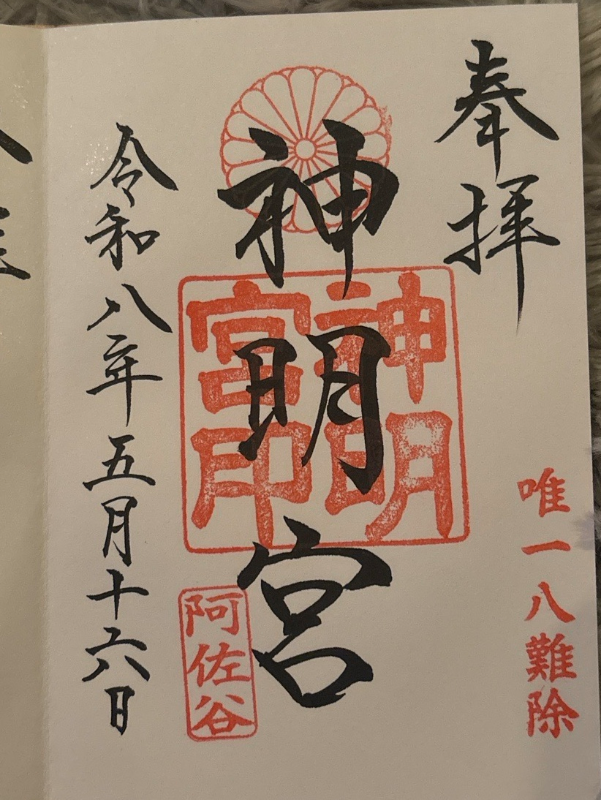 奉拝
唯一八難除
神明宮
神明宮印
阿佐谷
令和八年五月十六日